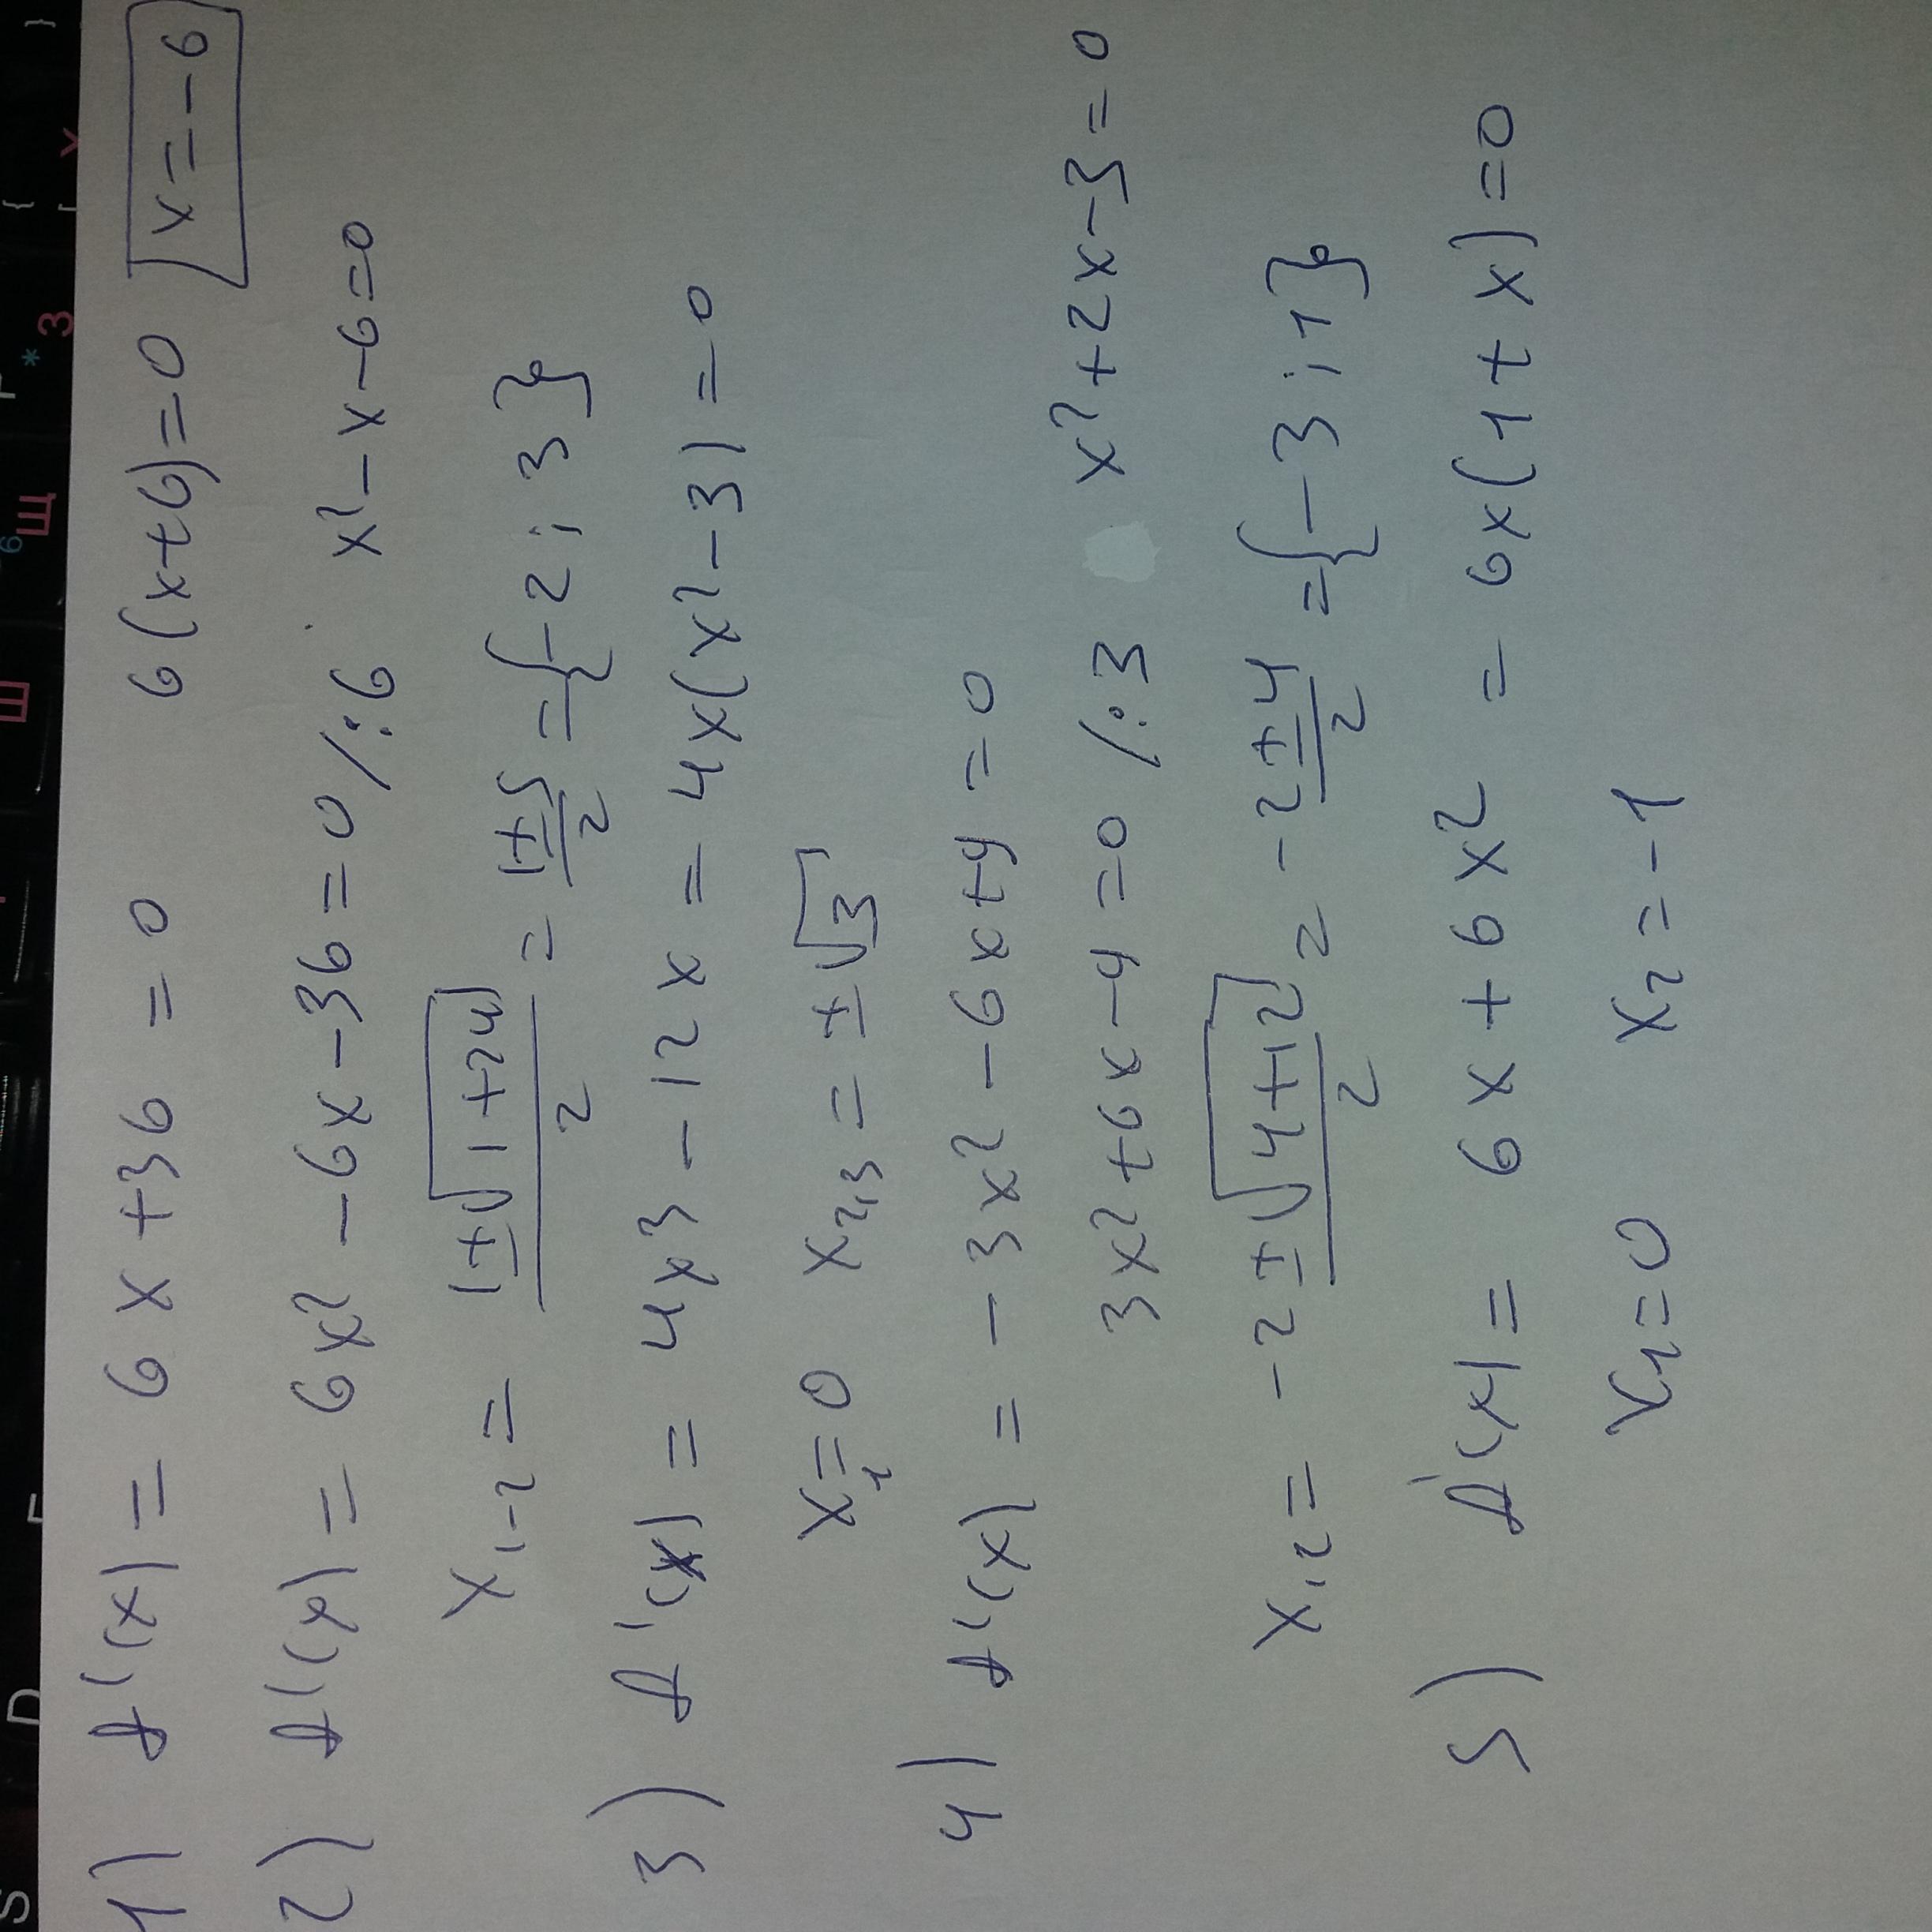 1) f'(x) = 6x+36 = 0 6(x+6)=0 x=-6
2) f'(x) = 6x² -6x-36=0 /:6 x²-x-6=0
x₁-₂ = (1±√(1+24))/2 = (1±5)/2 = {-2; 3}
3) f'(x) = 4x³ - 12x = 4x(x²-3) = 0
x₁=0 x₂,₃ = ±√3
4) f'(x) = -3x² -6x+9 = 0
3x²+6x-9=0 /:3 x²+2x-3=0
x₁,₂ = (-2±√(4+12))/2 = (-2±4)/2 = {-3; 1}
5) f'(x) = 6x+6x² = 6x(1+x)=0
x₁=0 x₂=-1
S D
Ш 6 Щ * З { [ }